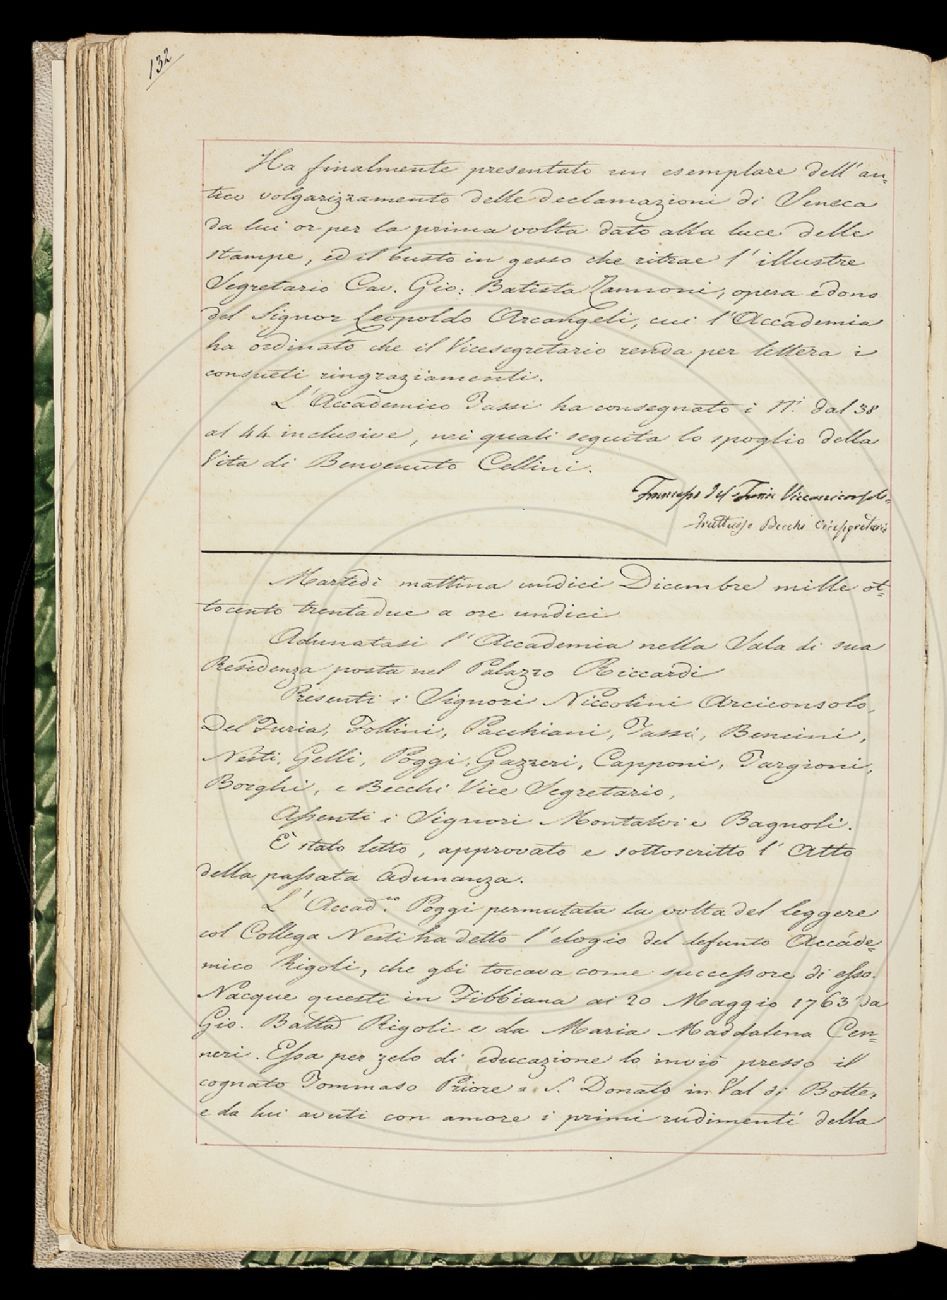 132
Ha finalmente presentato un esemplare dell'an=
tico volgarizzamento delle declamazioni di Seneca
da lui or per la prima volta dato alla luce delle
stampe, ed il busto in gesso che ritrae l'illustre
Segretario Cav. Gio: Batista Zannoni, opera e dono
del Signor Leopoldo Arcangeli, cui l'Accademia
ha ordinato che il Vicesegretario renda per lettera i
consueti ringraziamenti.
L'Accademico Tassi ha consegnato i N.i dal 38
al 44 inclusive, nei quali seguita lo spoglio della
Vita di Benvenuto Cellini.
Francesco Del Furia Vicearciconsolo
Fruttuoso Becchi Vicesegretario
Martedì mattina undici Dicembre mille ot=
tocento trentadue a ore undici
Adunatasi l'Accademia nella Sala di sua
Residenza posta nel Palazzo Riccardi
Presenti i Signori Niccolini Arciconsolo,
Del Furia, Follini, Pacchiani, Tassi, Bencini,
Nesti, Gelli, Poggi, Gazzeri, Capponi, Targioni,
Borghi, e Becchi Vice Segretario,
Assenti i Signori Montalvi e Bagnoli.
È stato letto, approvato e sottoscritto l'Atto
della passata Adunanza.
L'Accad.co Poggi permutata la volta del leggere
col Collega Nesti ha detto l'elogio del defunto Accade=
mico Rigoli, che gli toccava come successore di esso.
Nacque questi in Fibbiana ai 20 Maggio 1763 da
Gio. Batta Rigoli e da Maria Maddalena Cen=
neri. Essa per zelo di educazione lo inviò presso il
cognato Tommaso Priore a S. Donato in Val di Botte,
e da lui avuti con amore i primi rudimenti della